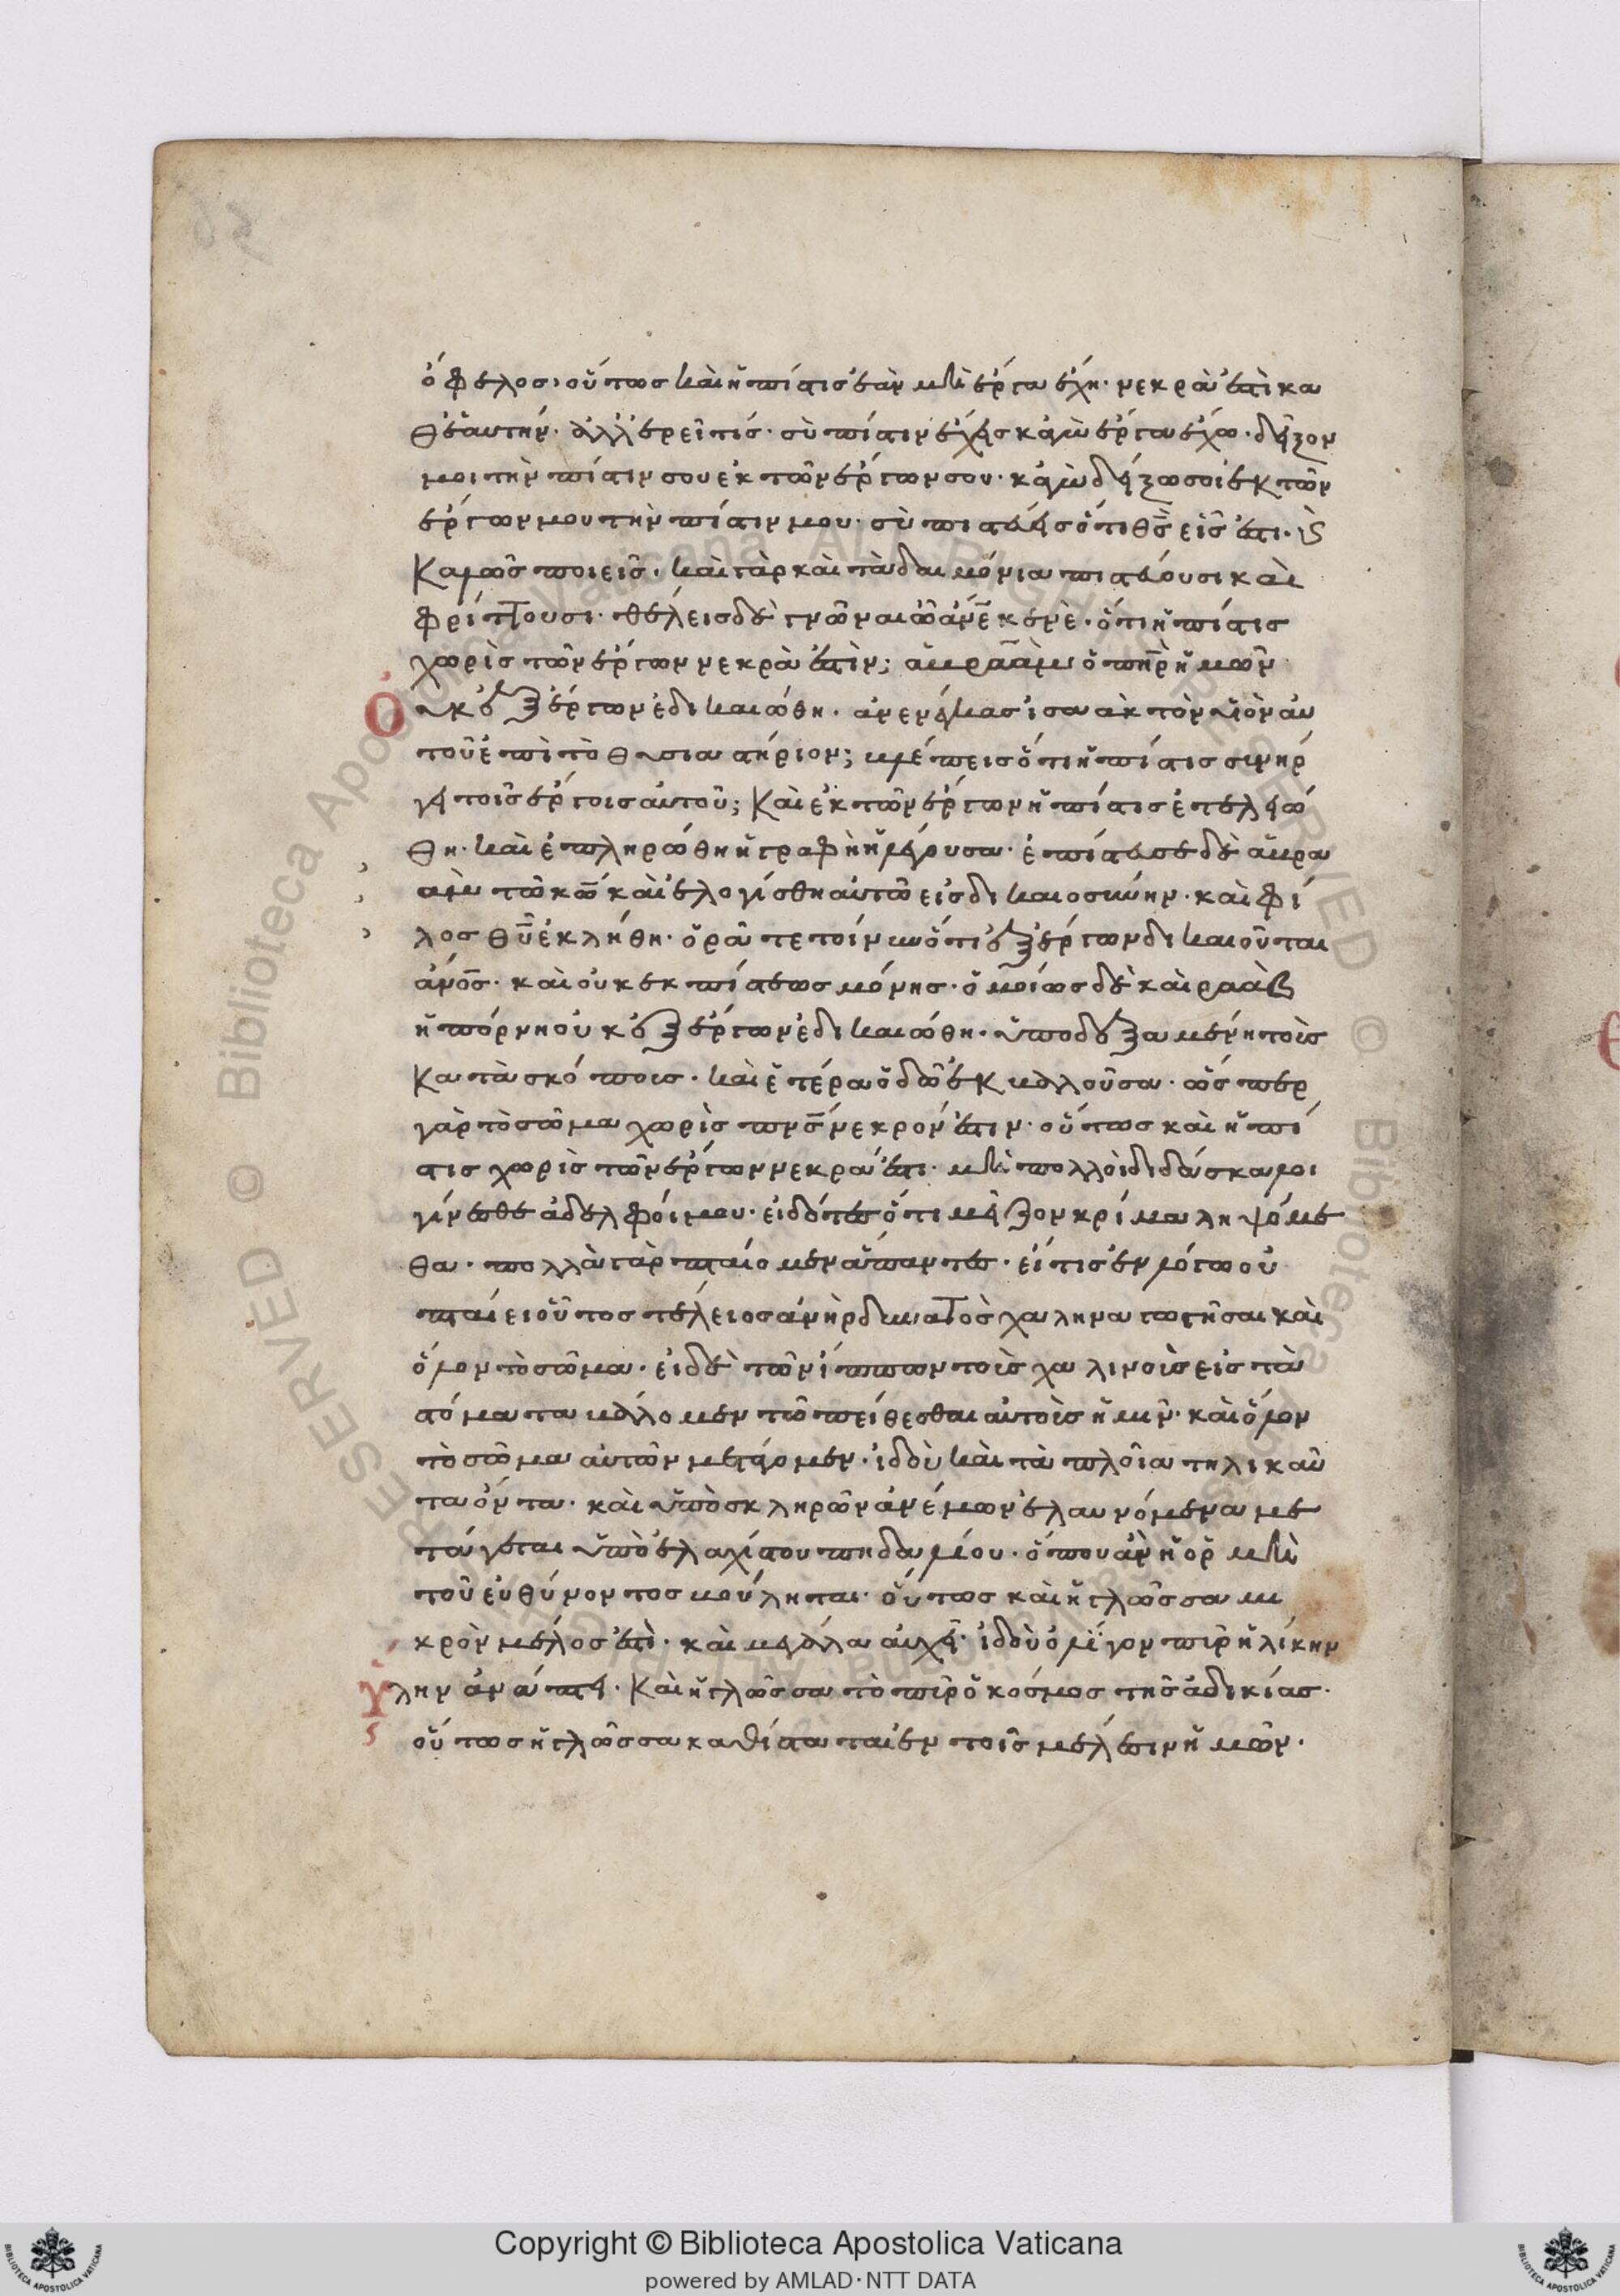 ὄφελος· οὕτως καὶ ἡ πίστις ἐὰν μὴ ἔργα ἔχη· νεκρά ἐστι κα
θεαυτήν· ἀλλ' ἐρεῖ τίς· σὺ πίστιν ἔχεις κἀγὼ ἔργα ἔχω· δεῖξον
μοι τὴν πίστιν σου ἐκ τῶν ἔργων σου· κἀγὼ δείξω σοι ἐκ τῶν
ἔργων μου τὴν πίστιν μου· σὺ πιστεύεις ὅτι θς εἷς ἐστι·
καλῶς ποιεῖς· καὶ γὰρ καὶ τὰ δαιμόνια πιστεύουσι καὶ
φρίττουσι· θέλεις δὲ γνῶναι ὦ ἄνε κενὲ· ὅτι ἡ πίστις
χωρὶς τῶν ἔργων νεκρά ἐστὶν; ἁβραὰμ ὁ πηρ ἡμῶν
Οὐκ ἐξ ἔργων ἐδικαιώθη· ἀνενέγκας ἰσαὰκ τὸν υἱὸν αὐ
τοῦ ἐπὶ τὸ θυσιαστήριον; βλέπεις ὅτι ἡ πίστις συνήρ
γει τοῖς ἔργοις αὐτοῦ; καὶ ἐκ τῶν ἔργων ἡ πίστις ἐτελειώ
θη· καὶ ἐπληρώθη ἡ γραφὴ ἡ λέγουσα· ἐπίστευσε δὲ ἁβρα
ὰμ τῶ κω καὶ ἐλογίσθη αὐτῶ εἰς δικαιοσύνην· καὶ φί
λος θυ ἐκλήθη· ὁρᾶτε τοίνυν ὅτι ἐξ ἔργων δικαιοῦται
ἄνος· καὶ οὐκ ἐκ πίστεως μόνης· ὁμοίως δὲ καὶ ραὰβ
ἡ πόρνη οὐκ ἐξ ἔργων ἐδικαιώθη· ὑποδεξαμένη τοὺς
κατασκόπους· καὶ ἑτέρα ὁδῶ ἐκβαλοῦσα· ὥσπερ
γὰρ τὸ σῶμα χωρὶς πνς νεκρόν ἐστιν· οὕτως καὶ ἡ πί
στις χωρὶς τῶν ἔργων νεκρά ἐστι· μὴ πολλοὶ διδάσκαλοι
γίνεσθε ἀδελφοί μου· εἰδότες ὅτι μεῖζον κρίμα ληψόμε
θα· πολλὰ γὰρ πταίομεν ἅπαντες· εἴ τις ἐν λόγω οὐ
πταίει οὗτος τέλειος ἀνὴρ δυνατὸς χαληναγωγῆσαι καὶ
ὅλον τὸ σῶμα· εἰ δὲ τῶν ἵππων τοὺς χαλινοὺς εἰς τὰ
στόματα βάλλομεν τῶ πείθεσθαι αὐτοὺς ἡμῖν· καὶ ὅλον
τὸ σῶμα αὐτῶν μετάγομεν· ἰδοὺ καὶ τὰ πλοῖα τηλικαῦ
τα ὄντα· καὶ ὑπὸ σκληρῶν ἀνέμων ἐλαυνόμενα με
τάγεται ὑπὸ ἐλαχίστου πηδαλίου· ὅπου ἂν ἡ ὁρμὴ
τοῦ εὐθύνοντος βούληται· οὕτως καὶ ἡ γλῶσσα μι
κρὸν μέλος ἐστὶ· καὶ μεγάλα αὐχεῖ· ἰδοὺ ὀλίγον πῦρ ἡλίκην
ὕλην ἀνάπτει· καὶ ἡ γλῶσσα τὸ πῦρ ὁ κόσμος τῆς ἀδικίας·
οὕτως ἡ γλῶσσα καθίσταται ἐν τοῖς μέλεσιν ἡμῶν·
Copyright © Biblioteca Apostolica Vaticana
powered by AMLAD·NTT DATA